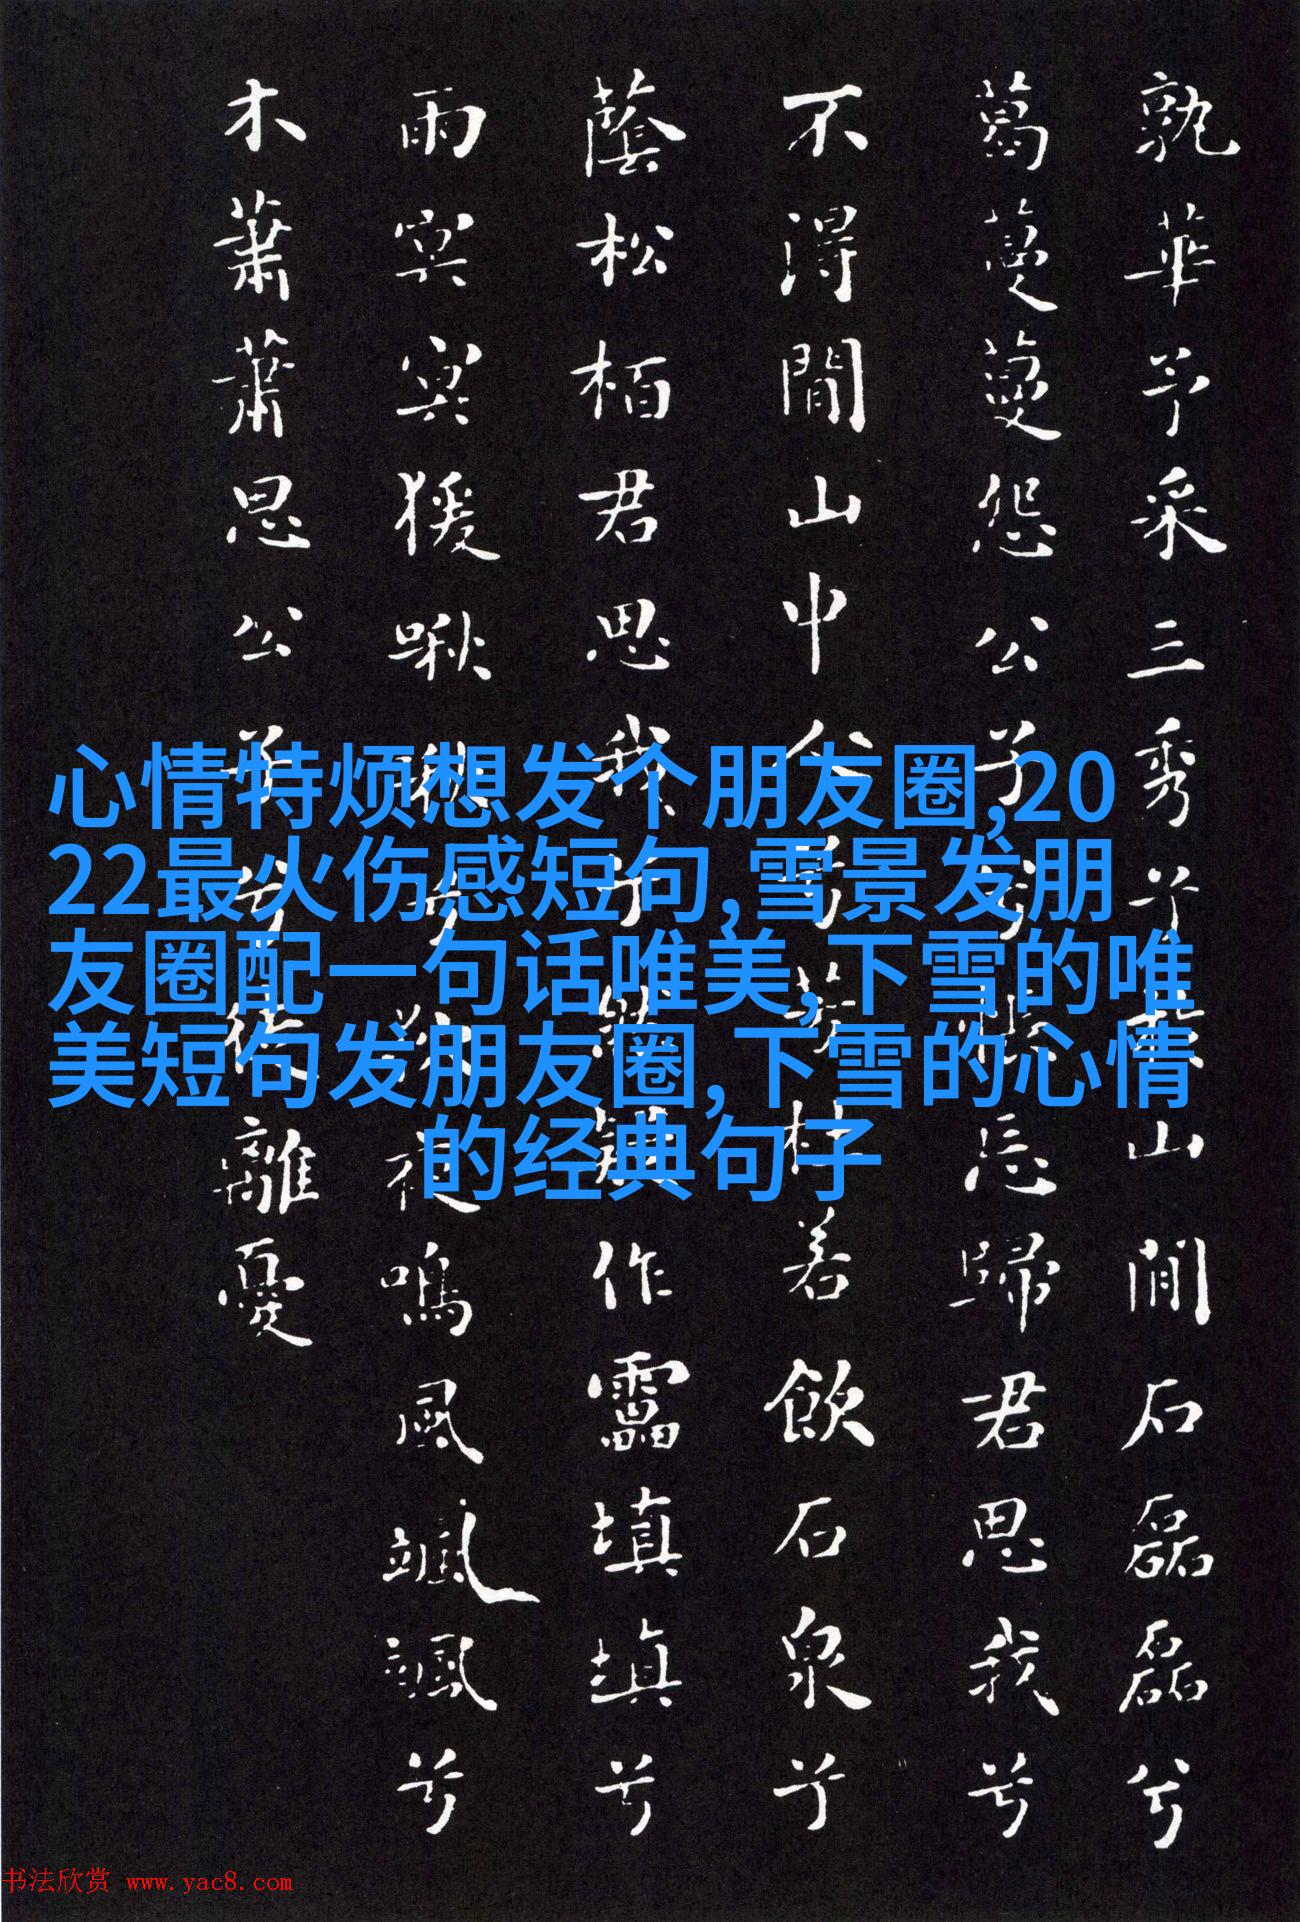 孰華予采三秀兮於山間石磊磊兮
葛蔓蔓怨公子兮悵忘歸君思我兮
不得間山中人兮芳杜若飲石泉兮
蔭松栢君思我兮然疑作靁填填兮
雨冥冥猨啾啾兮狖夜鳴風颯颯兮
木蕭蕭思公子兮徒離憂
心情特烦想发个朋友圈,20
22最火伤感短句,雪景发朋
友圈配一句话唯美,下雪的唯
美短句发朋友圈,下雪的心情
的经典句子
书法欣赏 www.yac8.com